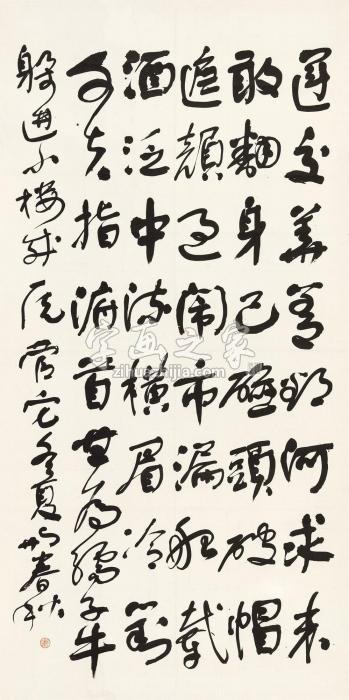 運交華蓋欲何求未
敢翻身已碰頭破帽
遮顏過鬧市漏船載
酒泛中流橫眉冷對
千夫指俯首甘為孺子牛
躲進小樓成一統管它冬夏與春秋
字画之家
zihuazhijia.com